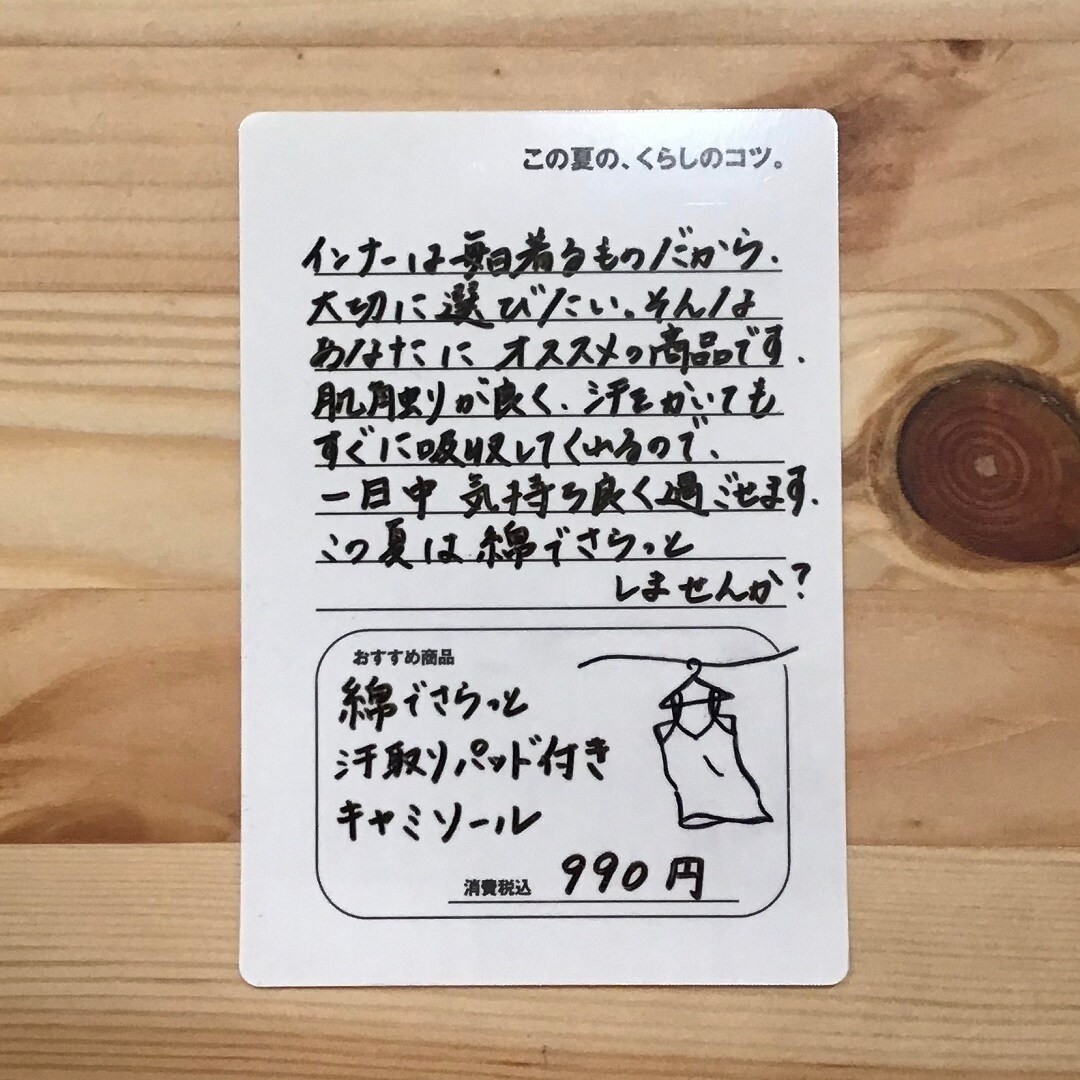 この夏の、くらしのコツ。
インナーは毎日着るものだから、
大切に選びたい。そんな
あなたに オススメの商品です。
肌触りが良く、汗をかいても
すぐに吸収してくれるので、
一日中 気持ち良く過ごせます。
この夏は綿でさらっと
しませんか？
おすすめ商品
綿でさらっと
汗取りパッド付き
キャミソール
消費税込 990円